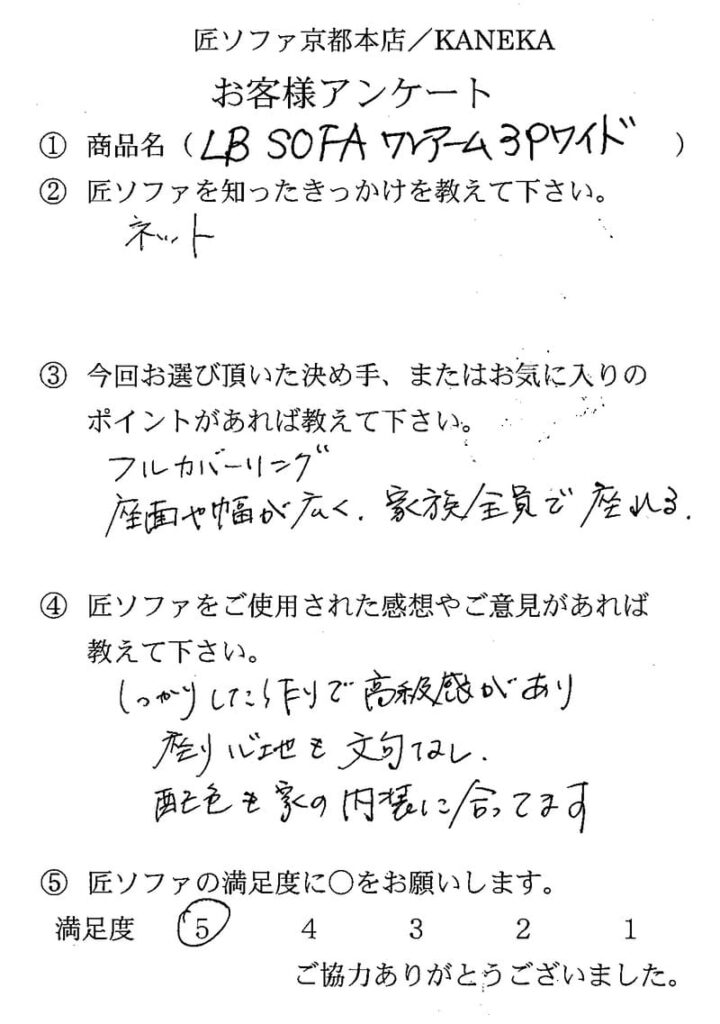 匠ソファ京都本店／KANEKA
お客様アンケート
① 商品名（LB SOFA ワンアーム3Pワイド）
② 匠ソファを知ったきっかけを教えて下さい。
ネット
③ 今回お選び頂いた決め手、またはお気に入りの
ポイントがあれば教えて下さい。
フルカバーリング
座面や幅が広く、家族全員で座れる.
④ 匠ソファをご使用された感想やご意見があれば
教えて下さい。
しっかりした作りで高級感があり
座り心地も文句なし.
配色も家の内装に合ってます
⑤ 匠ソファの満足度に○をお願いします。
満足度 5 4 3 2 1
ご協力ありがとうございました。